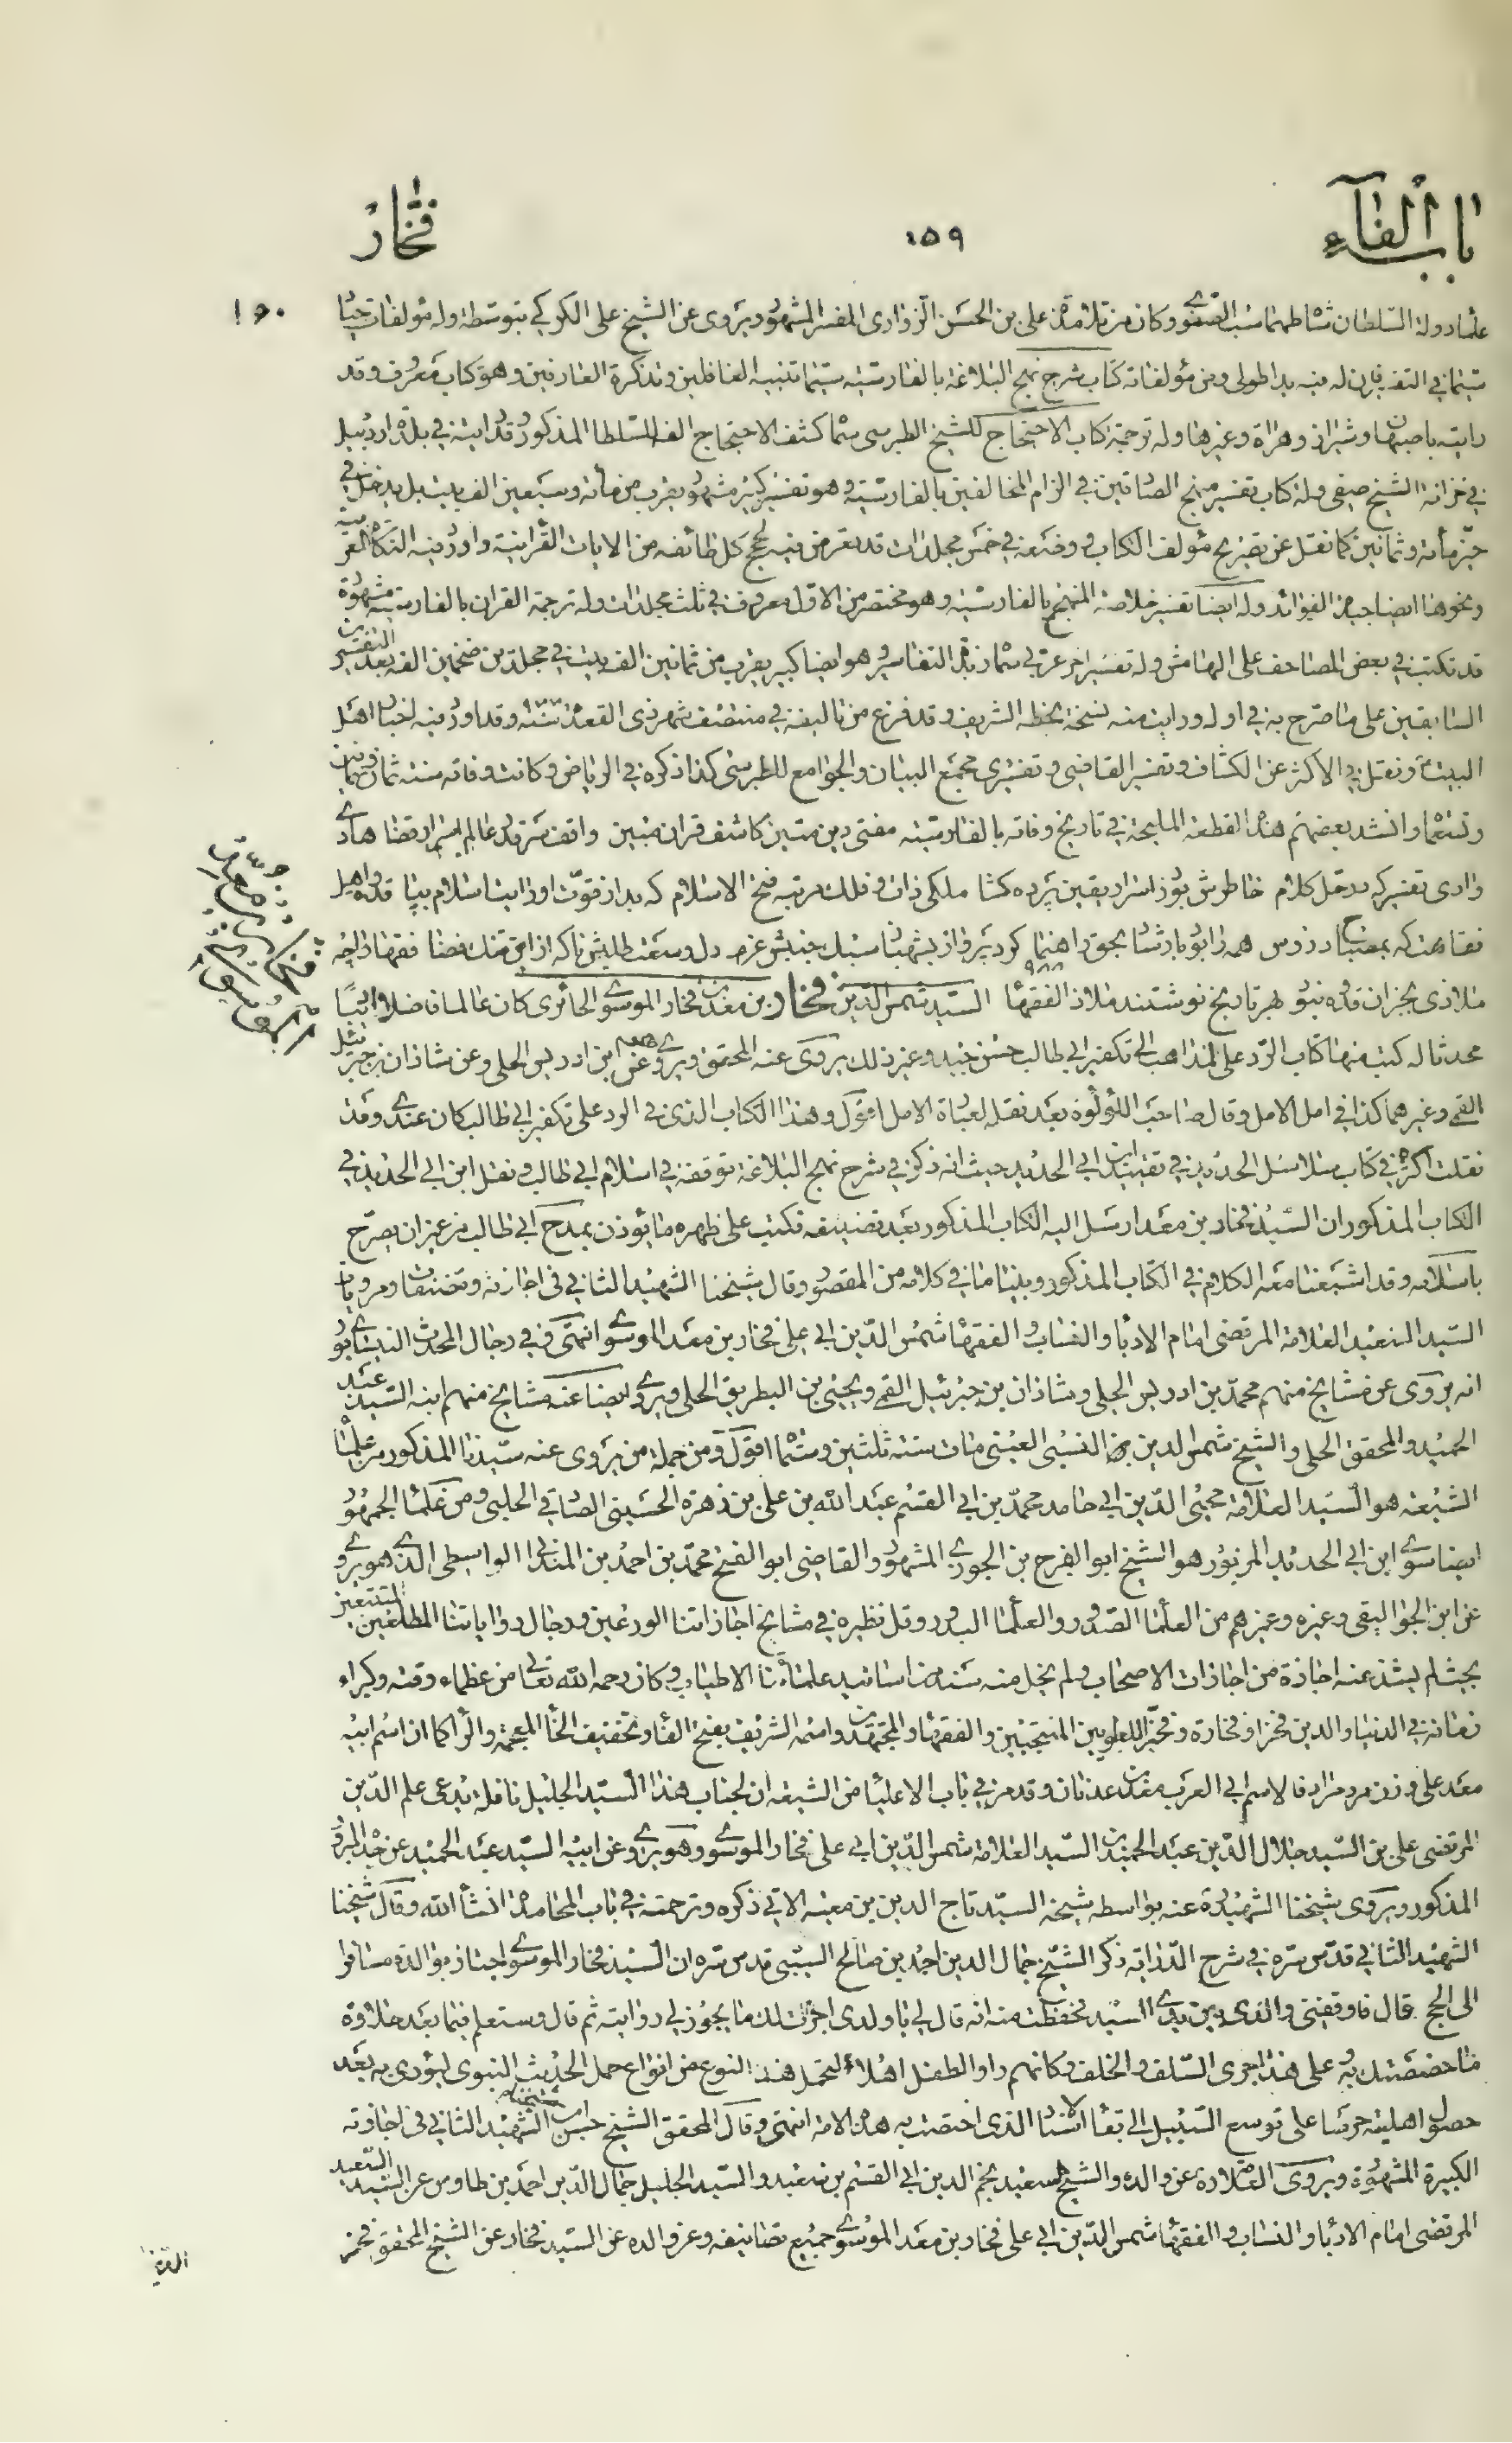 باب الفآء
١٥٩
فخار
علماء دولة السلطان شاطهماسب الصفوي وكان من تلامذة على بن الحسن الزوارى المفسر المشهور ويروى عن الشيخ على الكركي بتوسطه وله مؤلفات جياد
١٥٠
سيما في التفسير فان له فيه يدا طولى ومن مؤلفاته كتاب شرح نهج البلاغة بالفارسية سيما تنبيه الغافلين وتذكرة العارفين وهو كتاب معروف وقد
رايته باصبهان وشيراز وهراة وغيرها وله ترجمة كتاب الاحتجاج للشيخ الطبرسى سماه كشف الاحتجاج الفه للسلطان المذكور وقد رايته في بلدة اردبيل
في خزانة الشيخ صيفى وله كتاب تفسير منهج الصادقين في الزام المخالفين بالفارسية وهو تفسير كبير مشهور يقرب من مأته وسبعين الف بيت بل يدخل في
حيز مأته وثمانين كما نقل عن تصريح مؤلف الكتاب ووضعه في خمس مجلدات قد تعرض فيه لحجج كل طائفه من الايات القرانية واورد فيه النكات العربية
ونحوها ايضا جيد الفوائد وله ايضا تفسير خلاصة المنهج بالفارسية وهو مختصر من الاول معروف في ثلث مجلدات وله ترجمة القران بالفارسية مشهورة
قد تكتب في بعض المصاحف على الهامش وله تفسير اخر عربي سماه زبدة التفاسير وهو ايضا كبير يقرب من ثمانين الف بيت في مجلدين ضخمين الفه بعد التفسيرين
السابقين على ما صرح به في اوله ورايت منه نسخة بخطه الشريف وقد فرغ من تاليفه في منتصف شهر ذى القعدة وقد اورد فيه اخبار اهل
البيت ونقل فيه الاكثر عن الكشاف وتفسير القاضى وتفسيرى مجمع البيان والجوامع للطبرسى كذا ذكره في الرياض وكانت وفاته سنة ثمان وثمانين
وتسعمأة وانشد بعضهم هذه القطعة المليحة في تاريخ وفاته بالفارسية مفتى دين متين كاشف قران مبين واقف سر قدر عالم اسرار قضا هادى
وادى تفسير كه در حل كلام خاطرش بود ز اسرار يقين پرده كشا ملكى ذات وفلك مرتبه فتح الاسلام كه بد از قوت او رايت اسلام بپا قدوه اهل
فقاهت كه بمصباح دروس همه را بود بارشاد بحق راهنما كرد پرواز بشهباز سبك جنبش عزم دل وسعت طلبش زانكه از اين تنك فضا فقها را چه
ملاذى بجز ان قدوه نبود بهر تاريخ نوشتند ملاذ الفقهاء ٩٨٨ السيد شمس الدين فخار بن معد بن فخار الموسوى الحائرى كان عالما فاضلا اديبا
محدثا له كتب منها كتاب الرد على الذاهب الى تكفير ابي طالب حسن جيد وغير ذلك يروى عنه المحقق ويروى هو عن ابن ادريس الحلى وعن شاذان بن جبرئيل
القمى وغيرهما كذا في امل الامل وقال صاحب اللؤلؤة بعد نقله لعبارة الامل اقول وهذا الكتاب الذى في الرد على تكفير ابي طالب كان عندى وقد
نقلت اكثره في كتاب سلاسل الحديد في تقييد ابن ابي الحديد حيث انه ذكر في شرح نهج البلاغة توقفه في اسلام ابي طالب ونقل ابن ابي الحديد في
الكتاب المذكور ان السيد فخار بن معد ارسل اليه الكتاب المذكور بعد تصنيفه فكتب على ظهره ما يؤذن بمدح ابي طالب من غير ان يصرح
باسلامه وقد اشبعنا معه الكلام في الكتاب المذكور وبينا ما في كلامه من المقصور وقال شيخنا الشهيد الثاني في اجازته وتصنيفات ومرويات
السيد السعيد العلامة المرتضى امام الادباء والنساب والفقهاء شمس الدين ابي على فخار بن معد الموسوى انتهى وفي رجال المحدث النيسابورى
انه يروى عن مشايخ منهم محمد بن ادريس الحلى وشاذان بن جبرئيل القمى ويحيى بن البطريق الحلى ويروى ايضا عنه مشايخ منهم ابنه السيد عبد
الحميد والمحقق الحلى والشيخ شمس الدين القسينى مات سنة ثلثين وستمأة اقول ومن جملة من يروى عنه سيدنا المذكور من علماء
الشيعه هو السيد العلامة محيى الدين ابي حامد محمد بن ابي القسم عبد الله بن على بن زهرة الحسينى الصادقي الحلبى ومن علماء الجمهور
ايضا سوى ابن ابي الحديد المزبور هو الشيخ ابو الفرج بن الجوزى المشهور والقاضى ابو الفتح محمد بن احمد بن المندائى الواسطى الذى هو يروى
عن ابن الجواليقى وغيره وغيرهم من العلماء الصدور والعلماء البدور وقل نظيره في مشايخ اجازاتنا الورعين ورجال رواياتنا المطلعين المتتبعين
بحيث لم يشذ عنه اجازة من اجازات الاصحاب ولم يخل منه سند من اسانيد علمائنا الاطياب وكان رحمه الله تعالى من عظماء وقته وكبراء
زمانه في الدنيا والدين فخرا وفخارة وفخر العلويين المنتجبين والفقهاء والمجتهدين واسمه الشريف بفتح الفاء وتخفيف الخاء المعجمة والراء كما ان اسم ابيه
معد على وزن مرد مرادفا لاسم ابي العرب معد بن عدنان وقد مر في باب الاعلياء من الشيعة ان لجناب هذا السيد الجليل نافلة يدعى علم الدين
المرتضى على بن السيد جلال الدين عبد الحميد بن السيد العلامة شمس الدين ابي على فخار الموسوى وهو يروى عن ابيه السيد عبد الحميد عن جده المبرور
المذكور ويروى شيخنا الشهيد ره عنه بواسطه شيخه السيد تاج الدين بن معيه الاتي ذكره وترجمته في باب المحامد انشاء الله وقال شيخنا
الشهيد الثاني قدس سره في شرح الدراية ذكر الشيخ جمال الدين احمد بن صالح السيبى قدس سره ان السيد فخار الموسوى اجتاز بوالده مسافرا
الى الحج قال فاوقفنى والدى بين يدى السيد فحفظت منه انه قال لي يا ولدى اجزت لك ما يجوز لي روايته ثم قال وستعلم فيما بعد حلاوة
ما خصصتك به وعلى هذا جرى السلف والخلف وكانهم راوا الطفل اهلا لتحمل هذا النوع من انواع حمل الحديث النبوى ليؤدى به بعد
حصول اهليته حرصا على توسع السبيل الى بقاء الاسناد الذى اختصت به هذه الامة انتهى وقال المحقق الشيخ حسن ابن شيخنا الشهيد الثاني في اجازته
الكبيرة المشهورة ويروى العلامة عن والده والشيخ السعيد نجم الدين ابي القسم بن سعيد والسيد الجليل جمال الدين احمد بن طاوس عن السيد السعيد
المرتضى امام الادباء والنساب والفقهاء شمس الدين ابي على فخار بن معد الموسوى جميع تصانيفه وعن والده عن السيد فخار عن الشيخ المحقق فخر